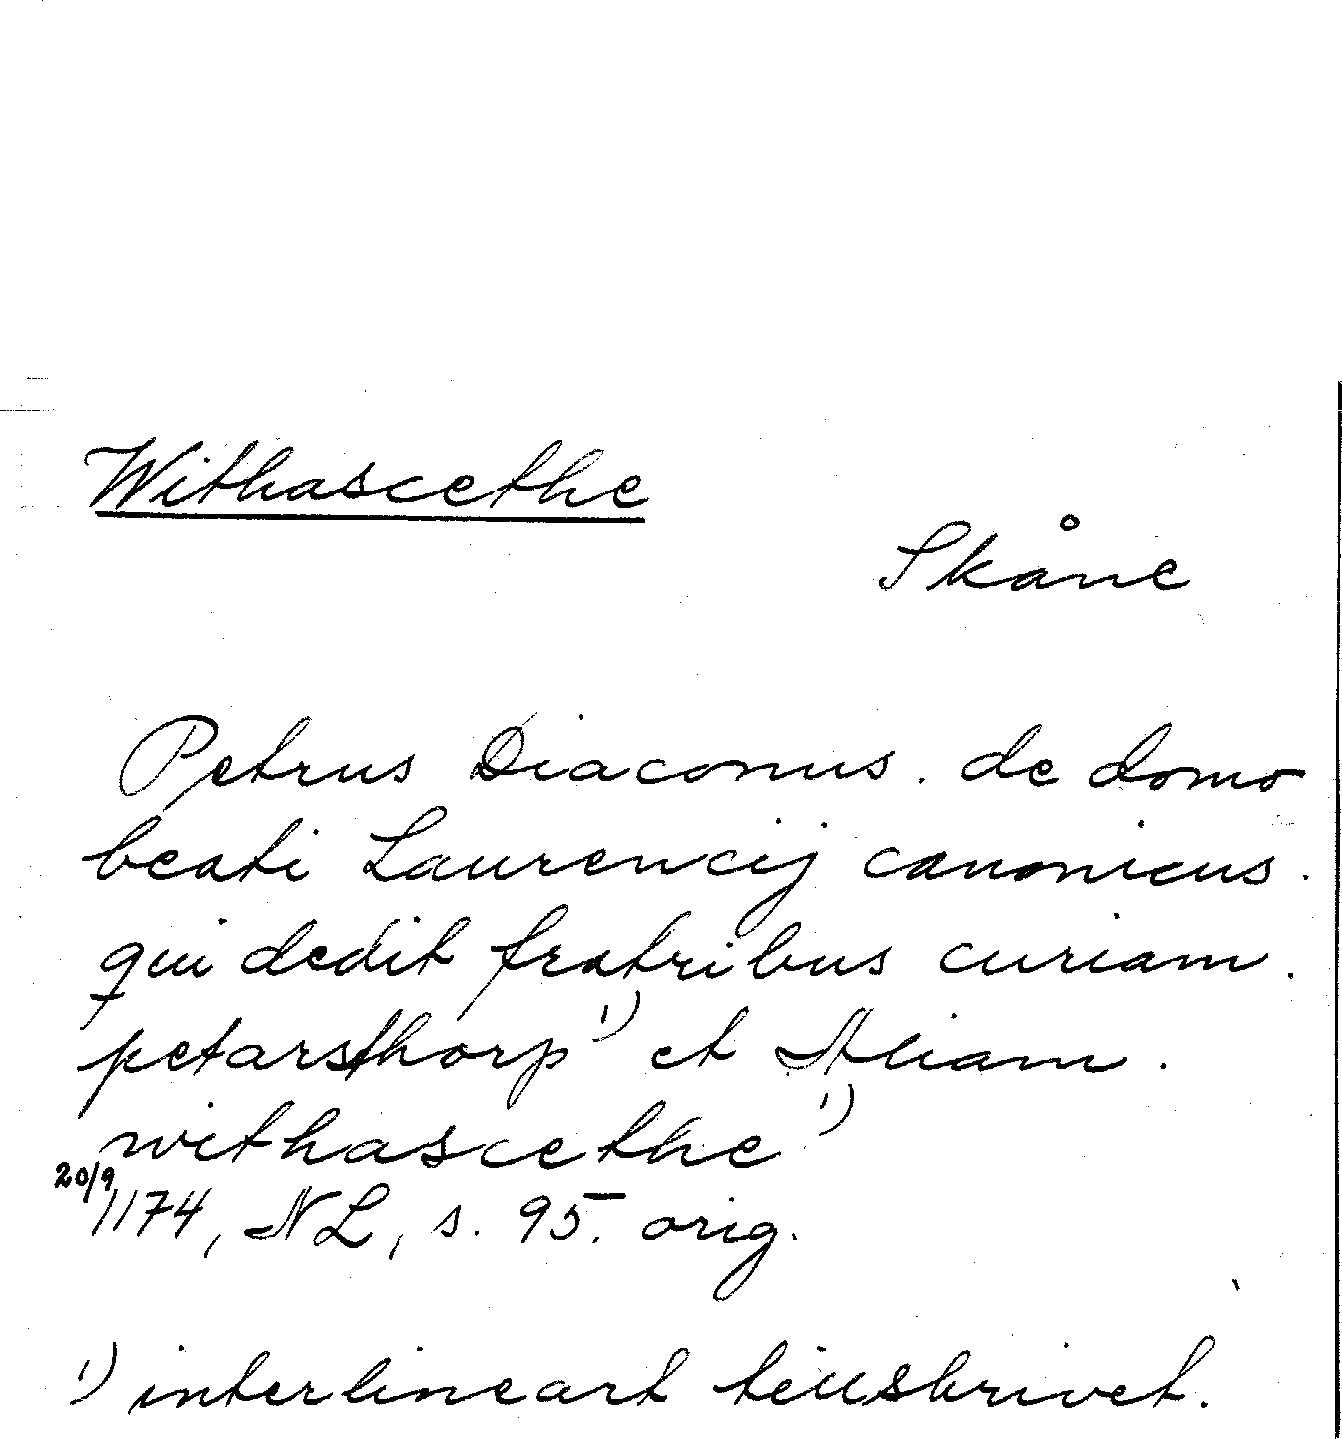 Withascethe
Skåne
Petrus Diaconus. de domo
beati Laurencij canonicus.
qui dedit fratribus curiam.
petarsthorp ¹⁾ et Aliam.
withascethe ¹⁾
20/9 1174, NL, s. 95. orig.
¹⁾ interlineart tillskrivet.